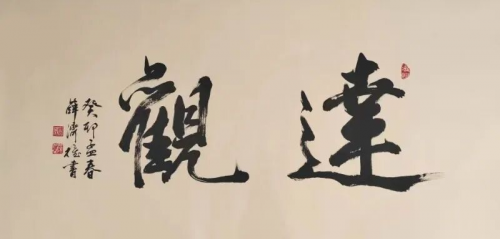 達觀
癸卯孟春
薛濟槐書